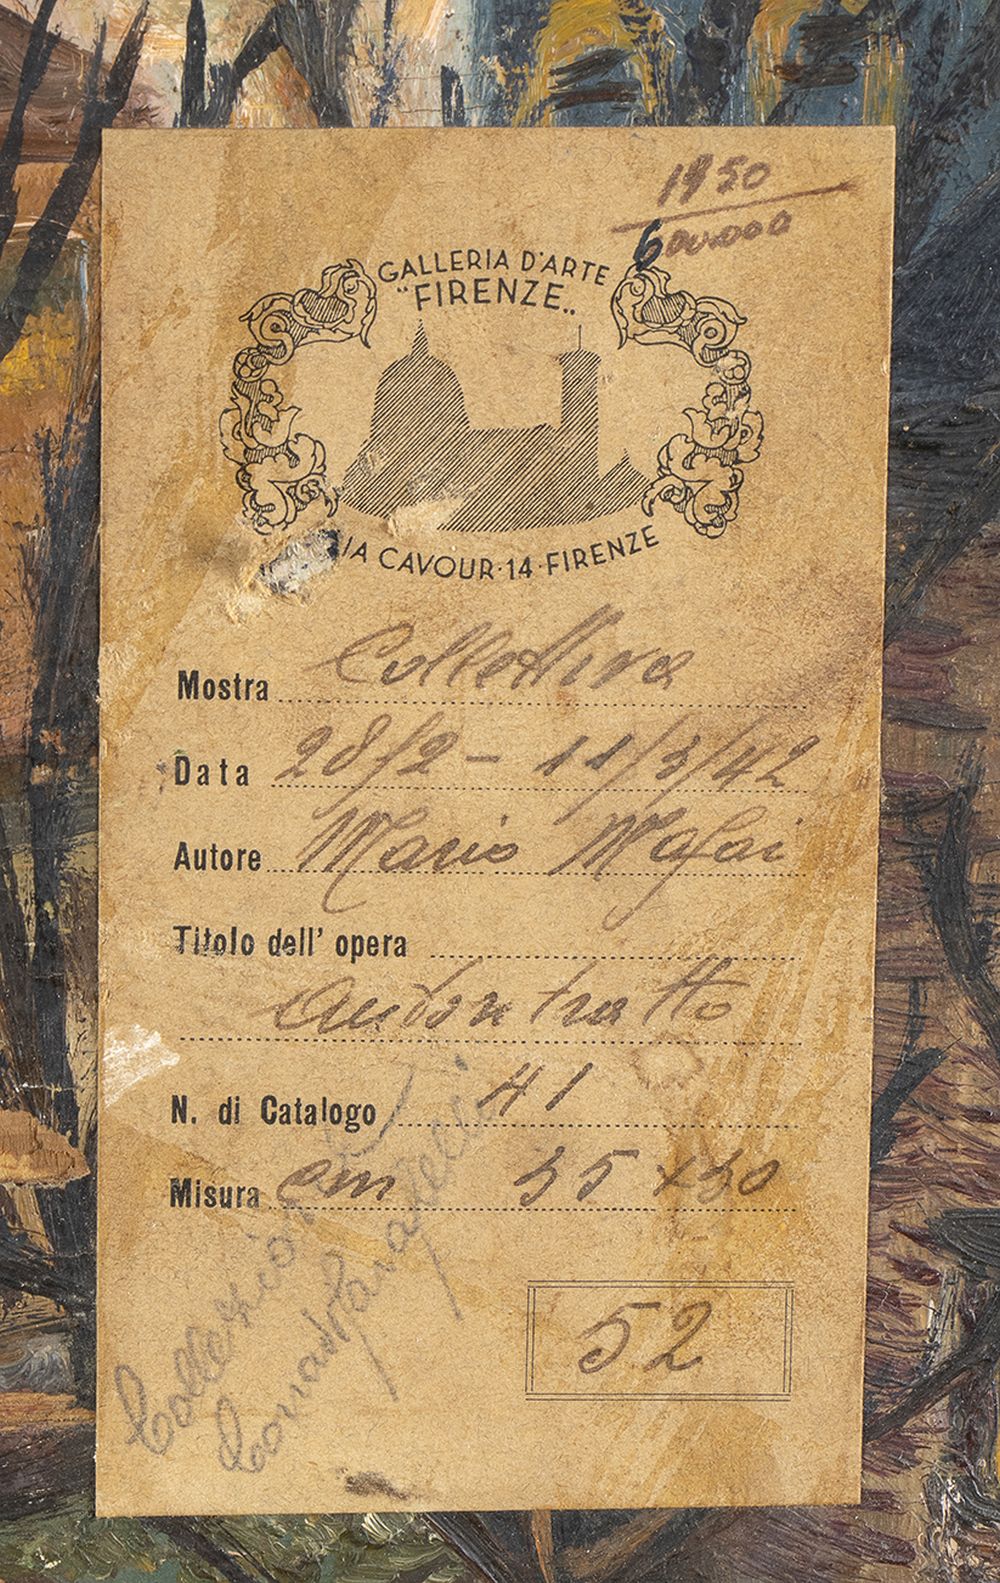 1950
600.000
GALLERIA D'ARTE
"FIRENZE"
VIA CAVOUR·14·FIRENZE
Mostra Collettiva
Data 28/2 - 11/3/42
Autore Mario Mafai
Titolo dell' opera
autoritratto
N. di Catalogo 41
Misura cm 35 x 50
52
Collezione